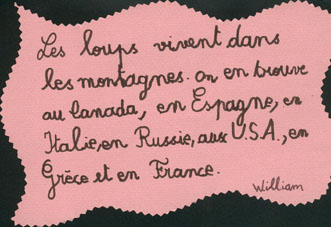 Les loups vivent dans
les montagnes. on en trouve
au Canada, en Espagne, en
Italie, en Russie, aux U.S.A., en
Grèce et en France.
William